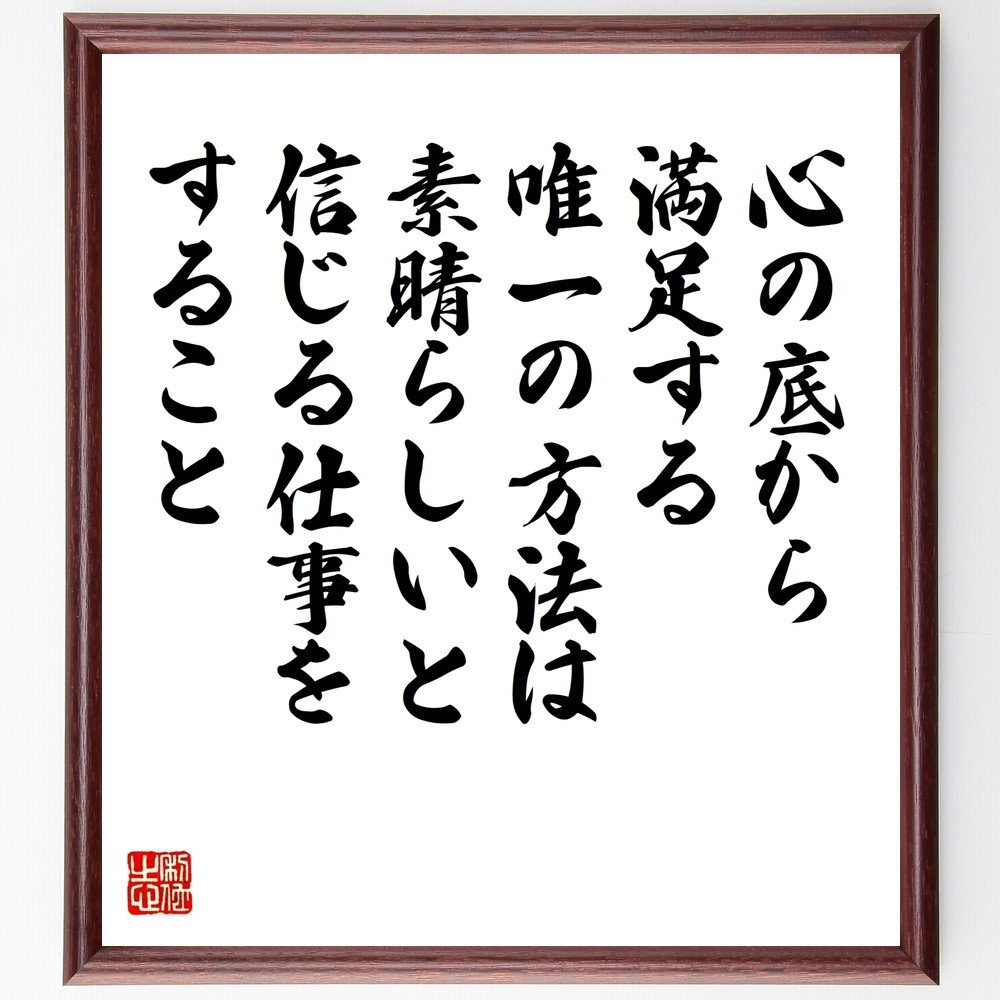 心の底から
満足する
唯一の方法は
素晴らしいと
信じる仕事を
すること